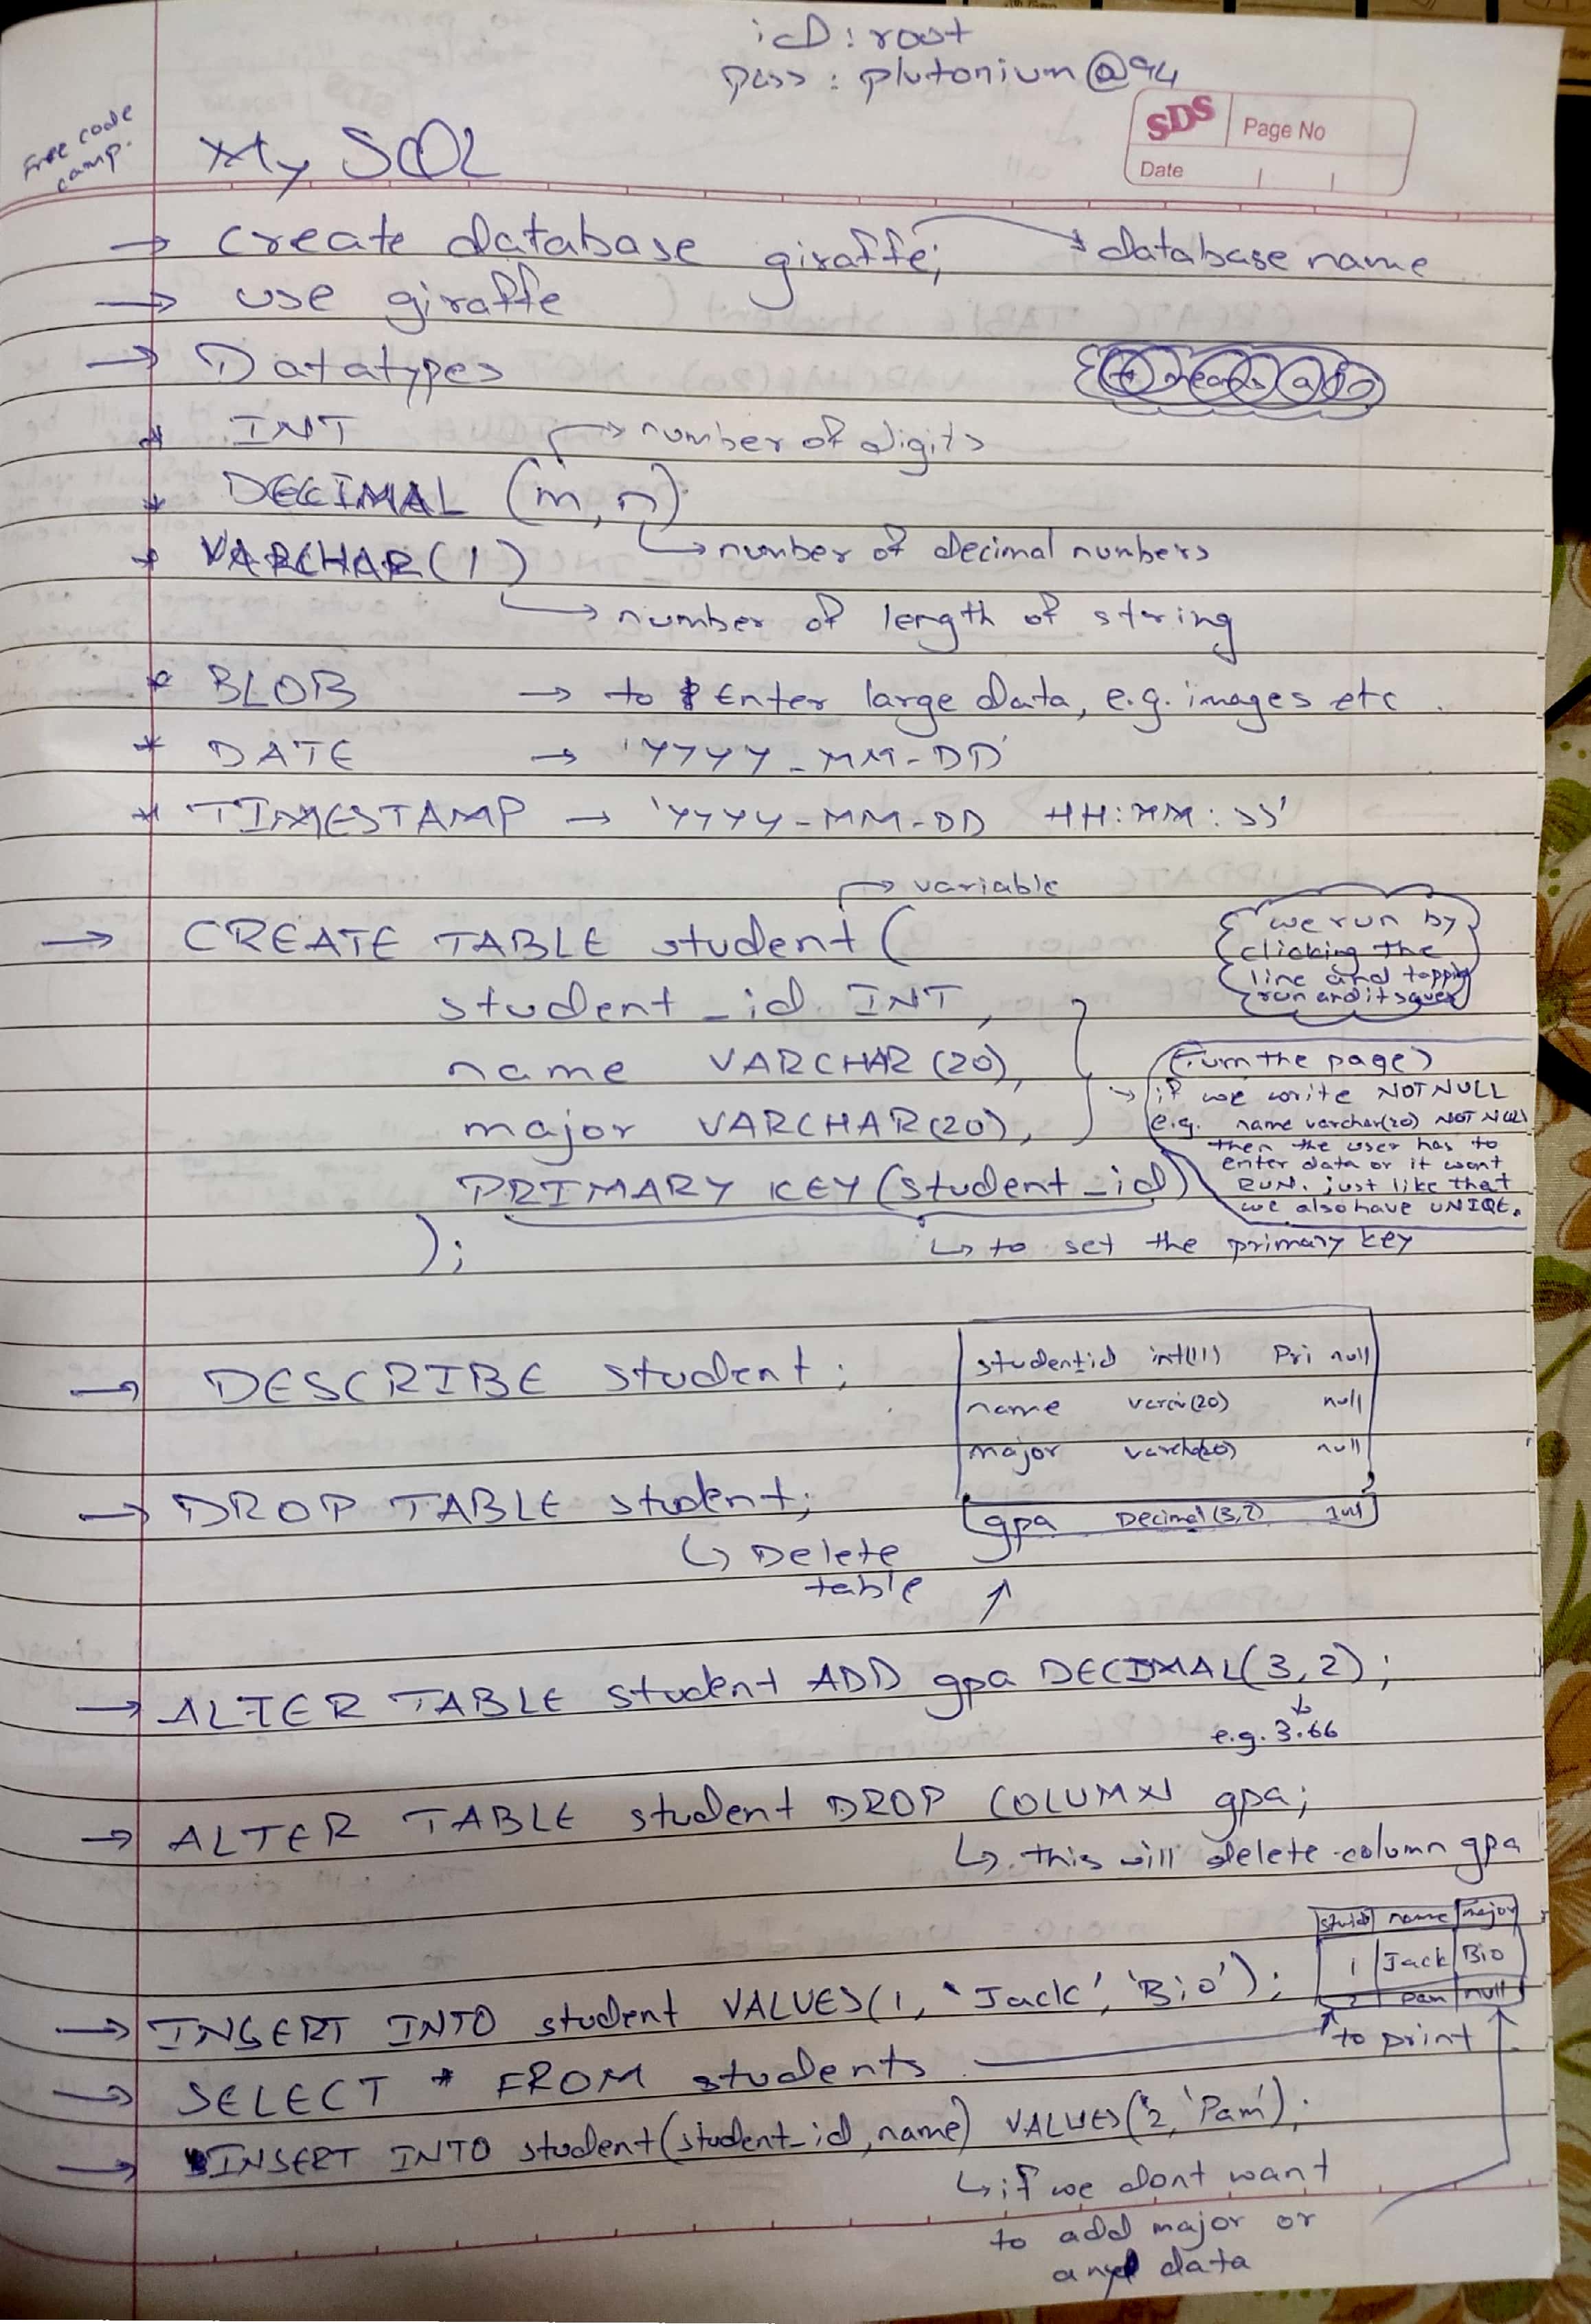 id : root
pass : plutonium@94
SDS
Page No
Date
Free code
camp.
My SQL
→ create database giraffe; → database name
→ use giraffe
→ Datatypes
* INT
→ number of digits
* DECIMAL (m,n)
↳ number of decimal numbers
* VARCHAR(1)
↳ number of length of string
* BLOB → to Enter large data, e.g. images etc.
* DATE → 'YYYY-MM-DD'
* TIMESTAMP → 'YYYY-MM-DD HH:MM:SS'
→ variable
→ CREATE TABLE student(
student_id INT,
name VARCHAR(20),
major VARCHAR(20),
PRIMARY KEY(student_id)
);
↳ to set the primary key
we run by
clicking the
line and tapping
run and it saves
(Turn the page)
→ if we write NOT NULL
e.g. name varchar(20) NOT NULL
then the user has to
enter data or it wont
RUN. just like that
we also have UNIQE.
→ DESCRIBE student;
studentid int(11) Pri null
name (20) null
major null
gpa Decimal(3,2) null
→ DROP TABLE student;
↳ Delete
table
→ ALTER TABLE student ADD gpa DECIMAL(3,2);
e.g. 3.66
→ ALTER TABLE student DROP COLUMN gpa;
↳ this will delete column gpa
name major
1 Jack Bio
2 pam null
→ INSERT INTO student VALUES(1, 'Jack', 'Bio');
to print
→ SELECT * FROM students
→ INSERT INTO student(student_id, name) VALUES(2, 'Pam');
↳ if we dont want
to add major or
any data